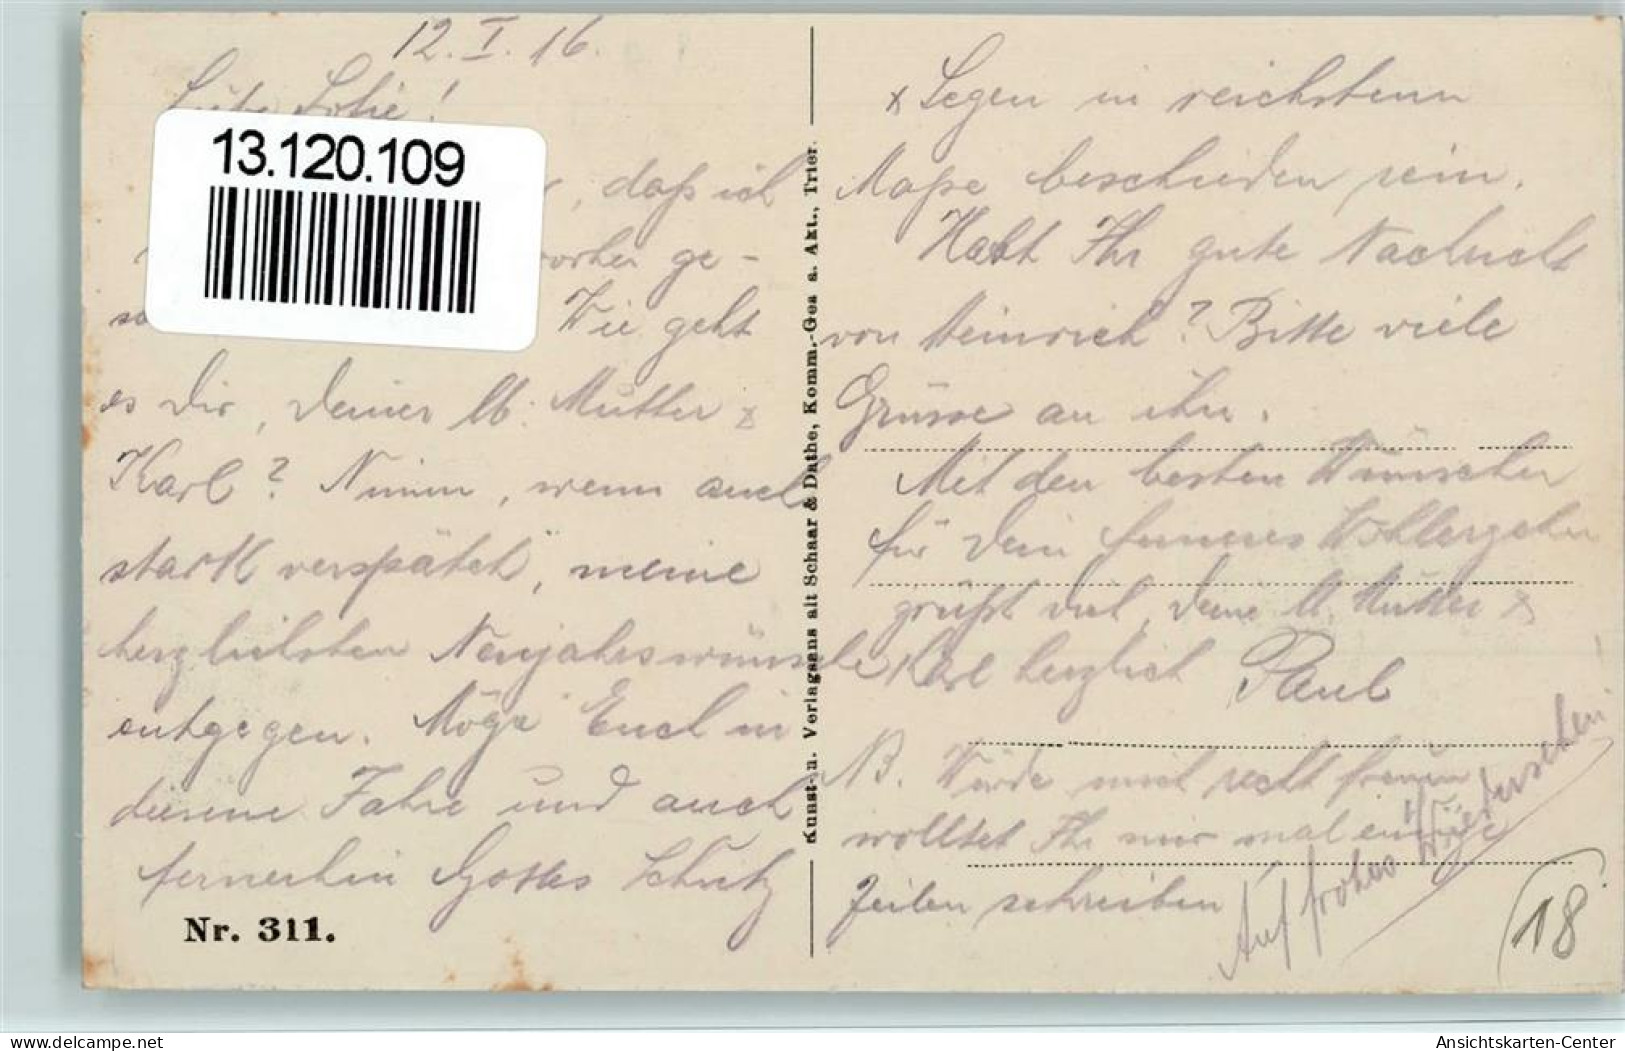 12. I. 16.
Liebe Sofie!
13.120.109
, daß ich
vorher ge-
Wie geht
es Dir, Deiner lb. Mutter &
Karl? Nimm, wenn auch
stark verspätet, meine
herzlichsten Neujahrswünsche
entgegen. Möge Euch in
diesem Jahre und auch
fernerhin Gottes Schutz
Nr. 311.
Kunst- u. Verlagsans alt Schaar & Dathe, Komm.-Ges a. Akt., Trier.
& Segen in reichstem
Maße beschieden sein.
Habt Ihr gute Nachricht
von Heinrich? Bitte viele
Grüsse an ihn.
Mit den besten Wünschen
für Dein ferneres Wohlergehen
grüßt Dich, Deine lb. Mutter &
Karl herzlich Paul
NB. Würde mich recht freuen
wolltet Ihr mir mal einige
Zeilen schreiben
Auf frohes Wiedersehen!
18
www.delcampe.net
Ansichtskarten-Center